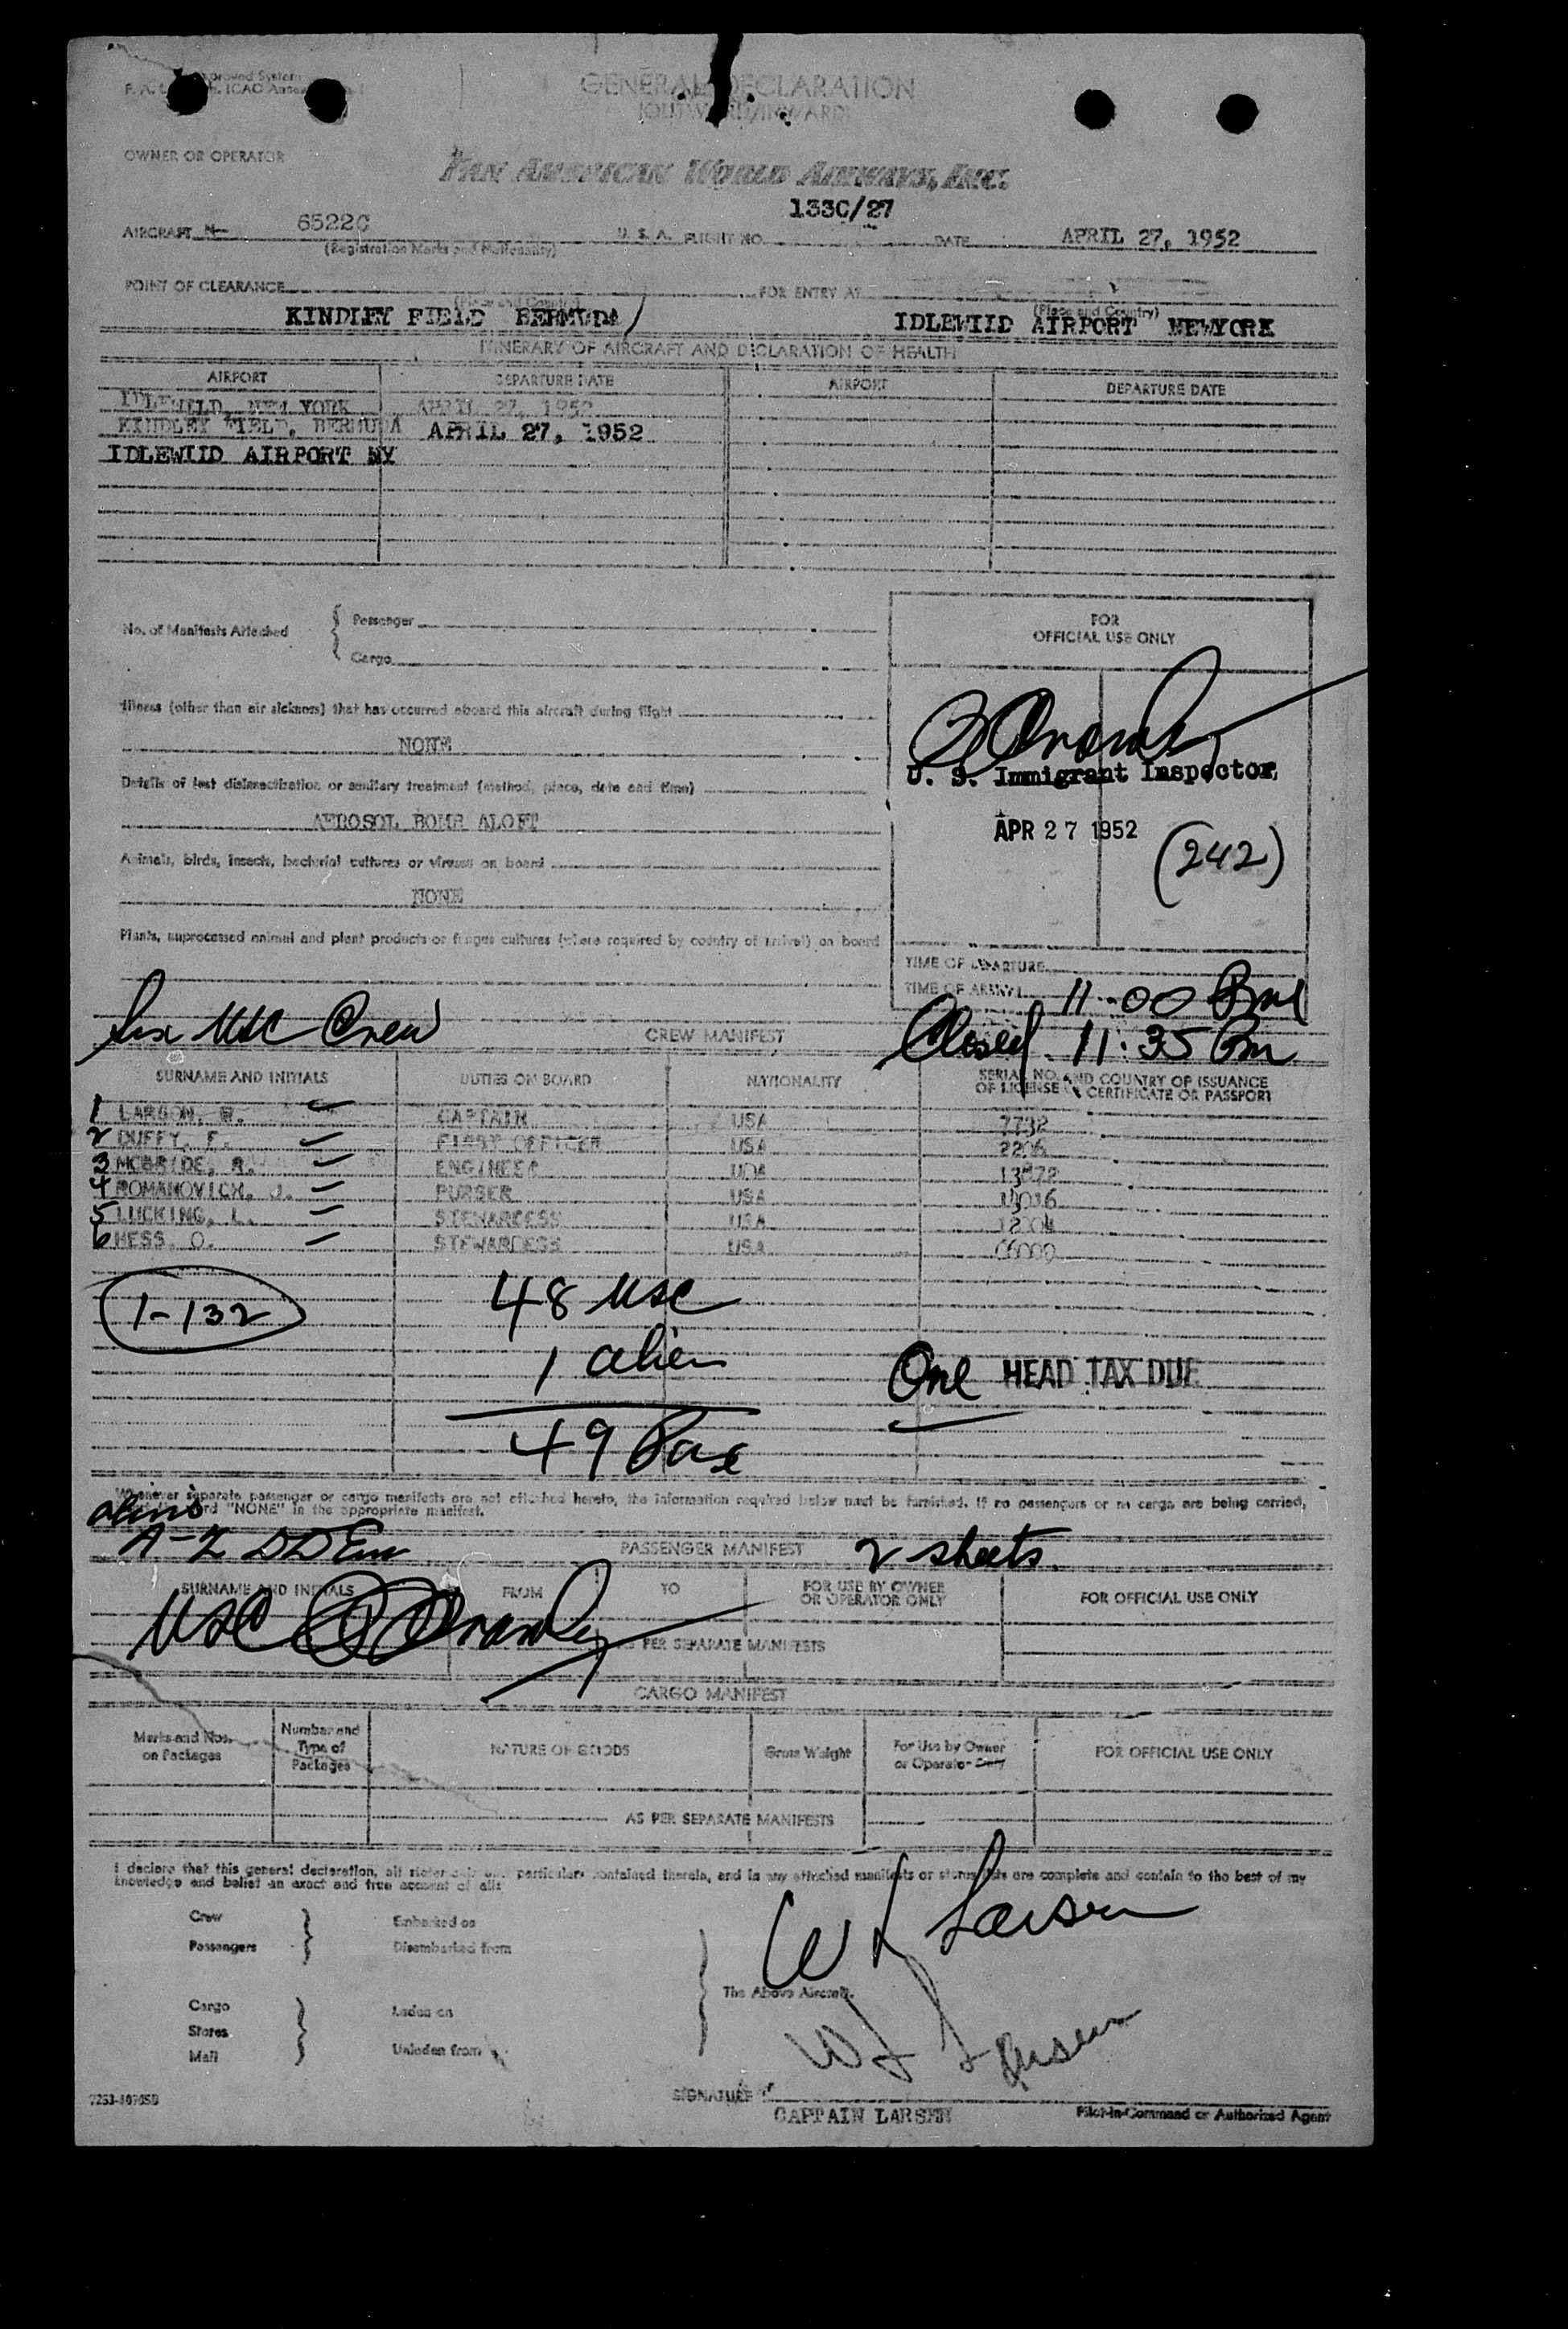 GENERAL DECLARATION
(OUTWARD/INWARD)
OWNER OR OPERATOR
PAN AMERICAN WORLD AIRWAYS, INC.
133C/27
AIRCRAFT N- 65220 U. S. A. FLIGHT NO. DATE APRIL 27, 1952
(Registration Marks and Nationality)
POINT OF CLEARANCE FOR ENTRY AT
(Place and Country) (Place and Country)
KINDLEY FIELD BERMUDA IDLEWIID AIRPORT NEWYORK
ITINERARY OF AIRCRAFT AND DECLARATION OF HEALTH
AIRPORT DEPARTURE DATE AIRPORT DEPARTURE DATE
IDLEWILD, NEW YORK APRIL 27, 1952
KINDLEY FIELD, BERMUDA APRIL 27, 1952
IDLEWIID AIRPORT NY
No. of Manifests Attached
Passenger
Cargo
FOR
OFFICIAL USE ONLY
Illness (other than air sickness) that has occurred aboard this aircraft during flight
NONE
U. S. Immigrant Inspector
Details of last disinsectization or sanitary treatment (method, place, date and time)
AEROSOL BOMB ALOFT
APR 27 1952
(242)
Animals, birds, insects, bacterial cultures or viruses on board
NONE
Plants, unprocessed animal and plant products or fungus cultures (where required by country of arrival) on board
TIME OF DEPARTURE
TIME OF ARRIVAL 11:00 Pm
Six USC Crew CREW MANIFEST Closed 11:35 Pm
SURNAME AND INITIALS DUTIES ON BOARD NATIONALITY SERIAL NO. AND COUNTRY OF ISSUANCE
OF LICENSE CERTIFICATE OR PASSPORT
1 LARSON, W. CAPTAIN USA 7732
2 DUFFY, F. FIRST OFFICER USA 2206
3 MCBRIDE, R. ENGINEER USA 13872
4 ROMANOVICH, J. PURSER USA
5 LUCKING, L. STEWARDESS USA
6 HESS, O. STEWARDESS USA
1-132
48 usc
1 alien
One HEAD TAX DUE
49 Pax
Whenever separate passenger or cargo manifests are not attached hereto, the information required below must be furnished. If no passengers or no cargo are being carried,
word "NONE" in the appropriate manifest.
aliens
A-Z PASSENGER MANIFEST 2 sheets
SURNAME AND INITIALS FROM TO FOR USE BY OWNER
OR OPERATOR ONLY FOR OFFICIAL USE ONLY
USC
AS PER SEPARATE MANIFESTS
CARGO MANIFEST
Marks and Nos.
on Packages
Number and
Type of
Packages
NATURE OF GOODS
Gross Weight
For Use by Owner
or Operator Only
FOR OFFICIAL USE ONLY
AS PER SEPARATE MANIFESTS
I declare that this general declaration, all particulars contained therein, and in any attached manifests or are complete and contain to the best of my
knowledge and belief an exact and true account of all:
Crew Embarked on
Passengers Disembarked from
W J Larsen
The Above Aircraft.
Cargo Laden on
Stores
Mail Unladen from
W J Larsen
SIGNATURE
CAPTAIN LARSEN Pilot-in-Command or Authorized Agent